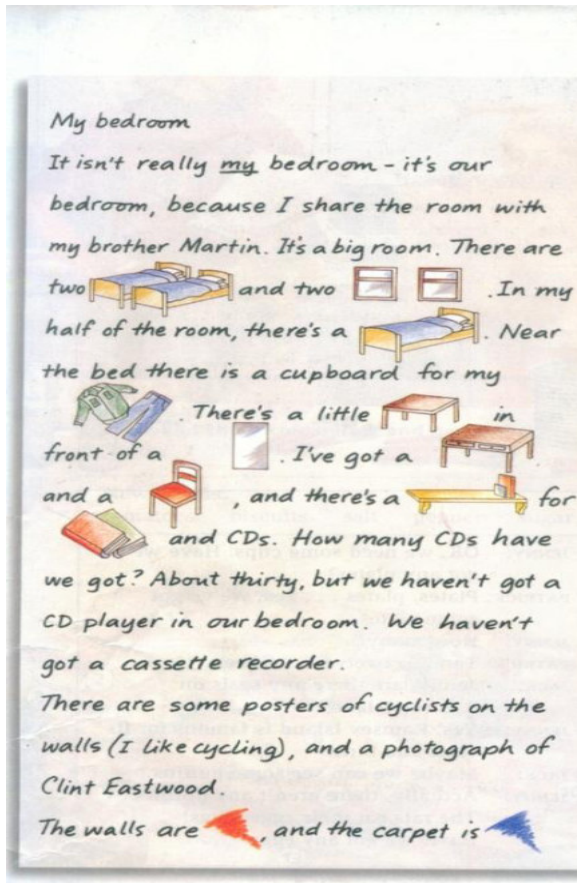 My bedroom
It isn't really my bedroom - it's our
bedroom, because I share the room with
my brother Martin. It's a big room. There are
two and two . In my
half of the room, there's a . Near
the bed there is a cupboard for my
. There's a little in
front of a . I've got a
and a , and there's a for
and CDs. How many CDs have
we got? About thirty, but we haven't got a
CD player in our bedroom. We haven't
got a cassette recorder.
There are some posters of cyclists on the
walls (I like cycling), and a photograph of
Clint Eastwood.
The walls are , and the carpet is